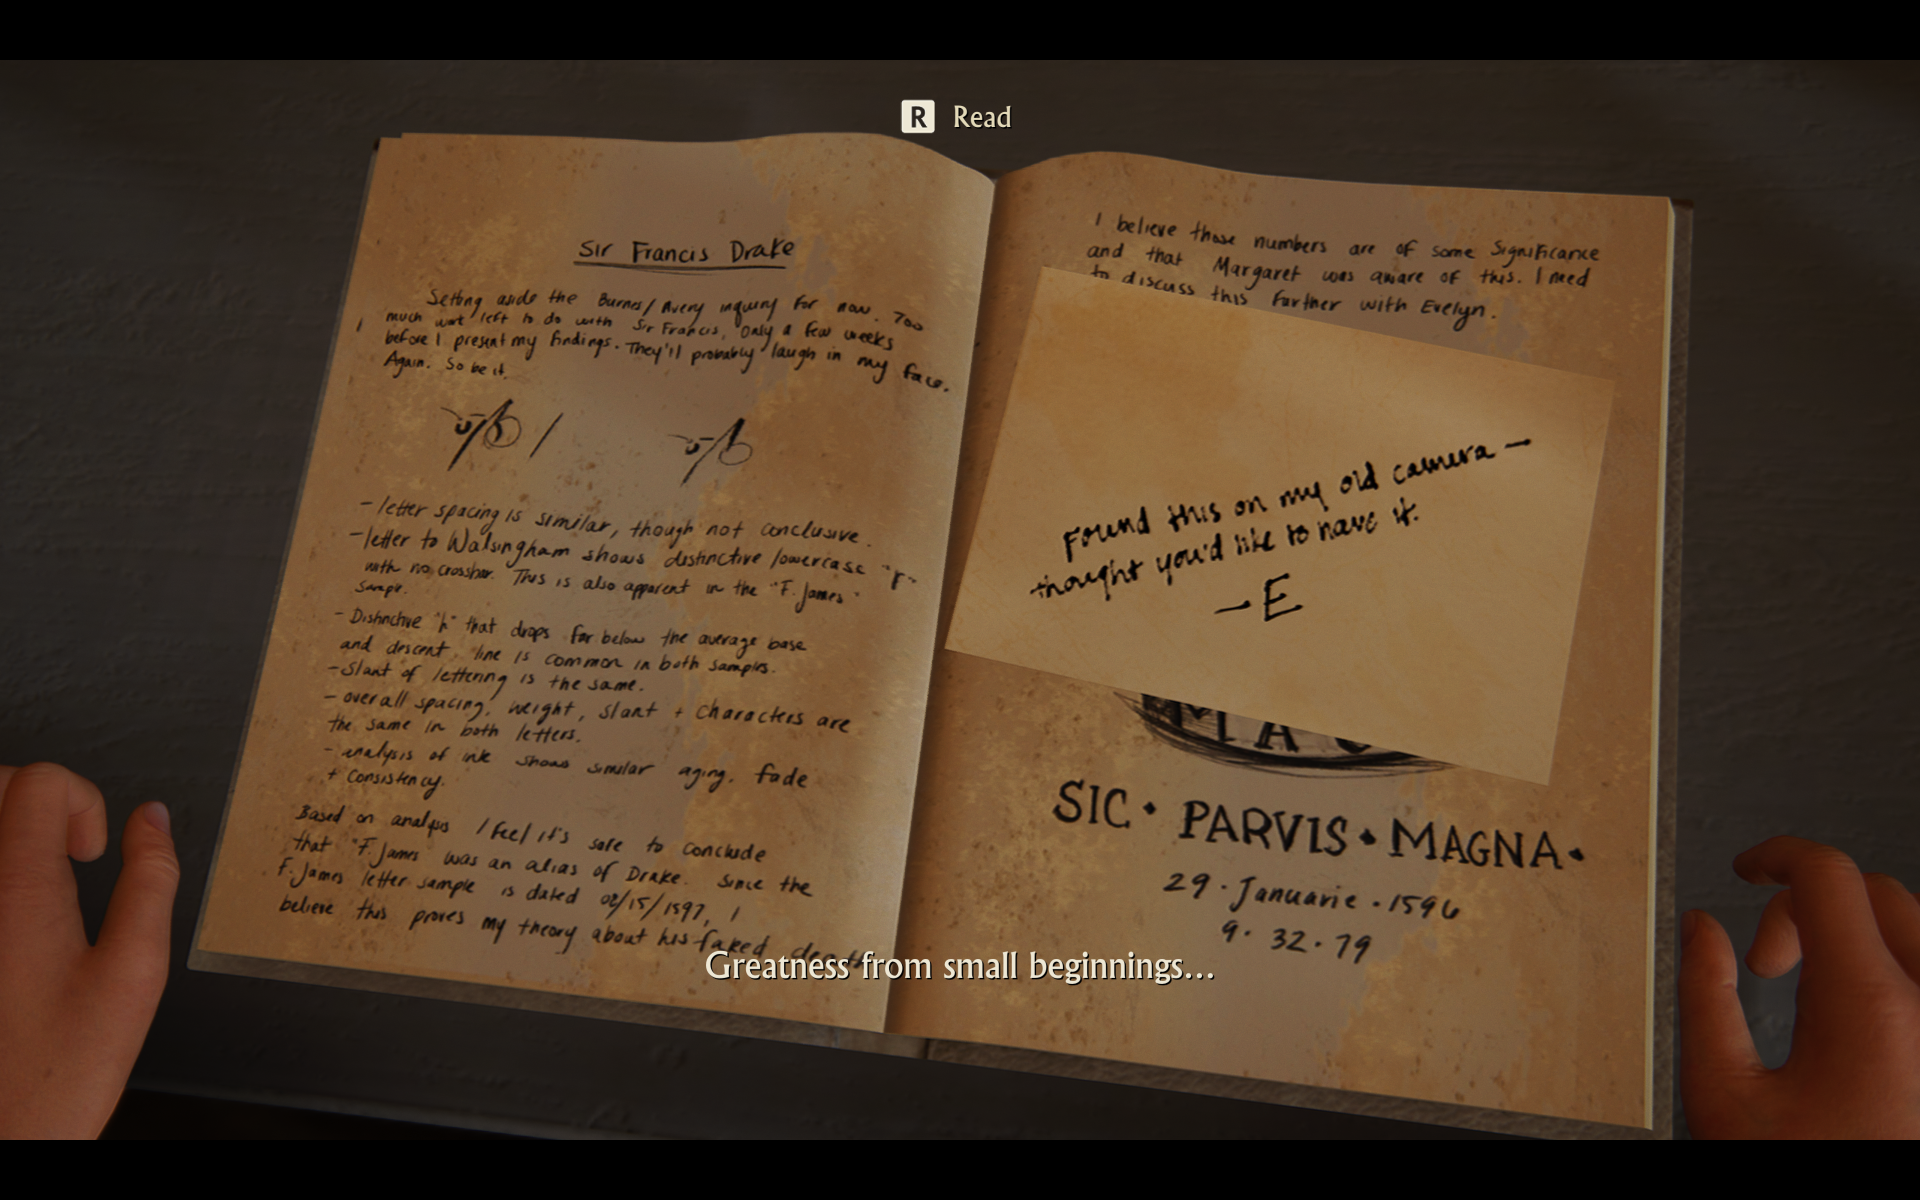 R Read
Sir Francis Drake
Setting aside the Burnes/Avery inquiry for now. Too
much work left to do with Sir Francis, only a few weeks
before I present my findings. They'll probably laugh in my face.
Again. So be it.
- letter spacing is similar, though not conclusive.
- letter to Walsingham shows distinctive lowercase "F"
with no crossbar. This is also apparent in the "F. James"
sample.
- Distinctive "h" that drops far below the average base
and descent line is common in both samples.
- Slant of lettering is the same.
- overall spacing, weight, slant + characters are
the same in both letters.
- analysis of ink shows similar aging, fade
+ consistency.
Based on analysis I feel it's safe to conclude
that "F. James was an alias of Drake. Since the
F. James letter sample is dated 02/15/1597, I
believe this proves my theory about his faked death
I believe those numbers are of some significance
and that Margaret was aware of this. I need
to discuss this further with Evelyn.
Found this on my old camera —
thought you'd like to have it.
- E
SIC • PARVIS • MAGNA •
29 · Januarie · 1596
9 · 32 · 79
Greatness from small beginnings...